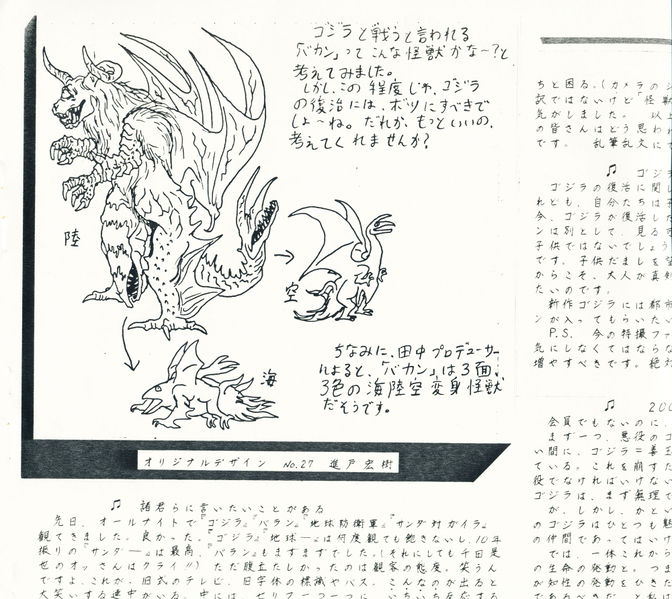 ゴジラと戦うと言われる
「バカン」ってこんな怪獣かな〜?と
考えてみました。
しかし、この程度じゃ、ゴジラ
の復活には、ボツにすべきで
しょ〜ね。だれか、もっといいの、
考えてくれませんか?
陸
空
海
ちなみに、田中プロデューサー
によると、「バカン」は3面、
3色の海陸空変身怪獣
だそうです。
オリジナルデザイン No.27 進戸宏樹
♫ 諸君らに言いたいことがある
先日、オールナイトで『ゴジラ』『バラン』『地球防衛軍』『サンダ対ガイラ』
観てきました。良かった。『ゴジラ』『地球―』は何度観ても飽きないし、10年
振りの『サンダ―』は最高。『バラン』もまずまずでした。(それにしても千田是
也のオッさんはクライ!!) ただ腹立たしかったのは観客の態度。笑うん
ですよ、これが。旧式のテレビ、日字体の標識やバス、こんなのが出ると
大笑いする連中がいる。中には、セリフ一つ一つにいちいち反応する
ちと困る。(カメラの
訳ではないけど「怪
気がしました。 以上
の皆さんはどう思わ
です。 乱筆乱文にて
♫ ゴジ
ゴジラの復活に関し
れども、自分たちは
今、ゴジラが復活し
ンは別として、見る
子供ではないでしょう
です。子供だましを
からこそ、大人が真
たいのです。
新作ゴジラには都市
ンが入ってもらいたい
P.S. 今の特撮ファ
気にしなくてはならな
増やすべきです。絶対
♫ 200
会員でもないのに、
まず一つ、悪役のゴ
い間に、ゴジラ=善玉
ている。これを崩すた
役でなければいけない
ゴジラは、まず無理で
が、しかし、かとい
のゴジラはひとつも魅
の仲間であってはいけ
では、一体これから
の生命の発動と。つま
が知性の発動をひきた
であるべきだ。と私は